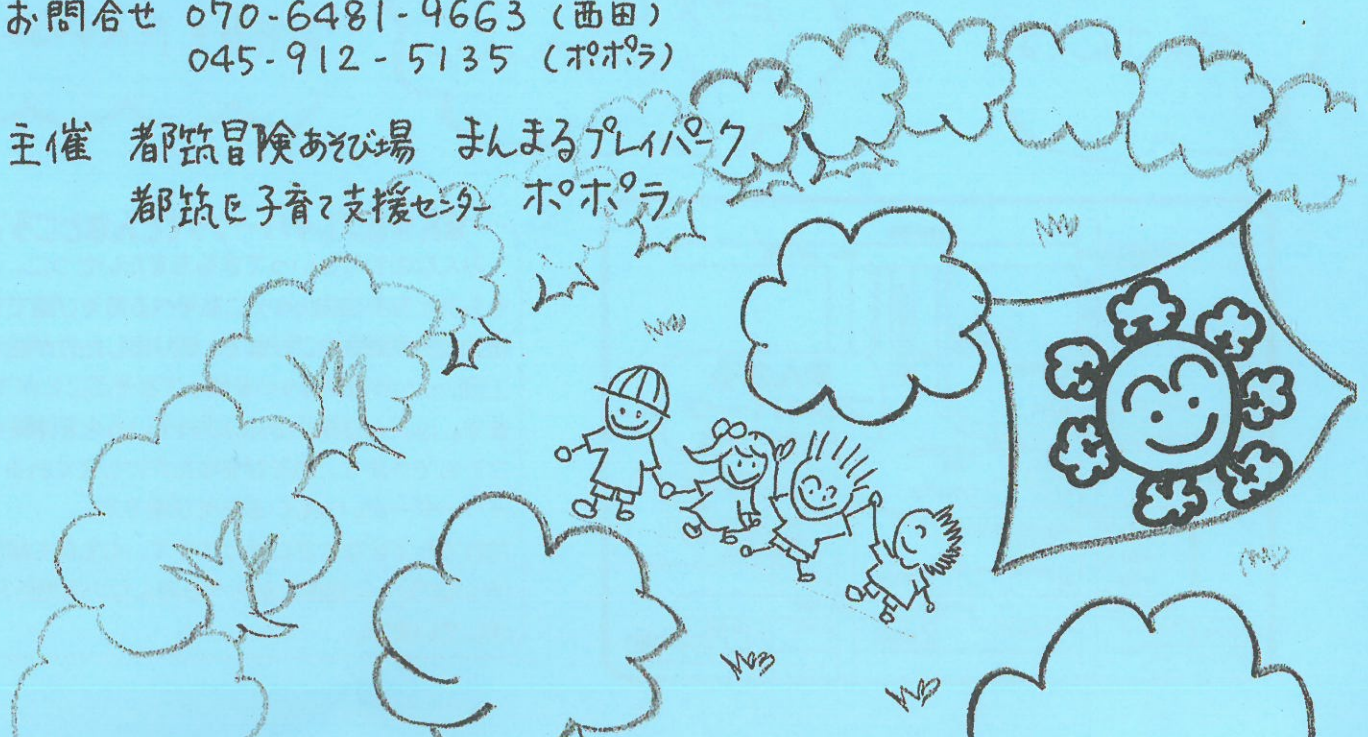 お問合せ 070-6481-9663 (西田)
045-912-5135 (ポポラ)
主催 都筑冒険あそび場 まんまるプレイパーク
都筑区子育て支援センター ポポラ